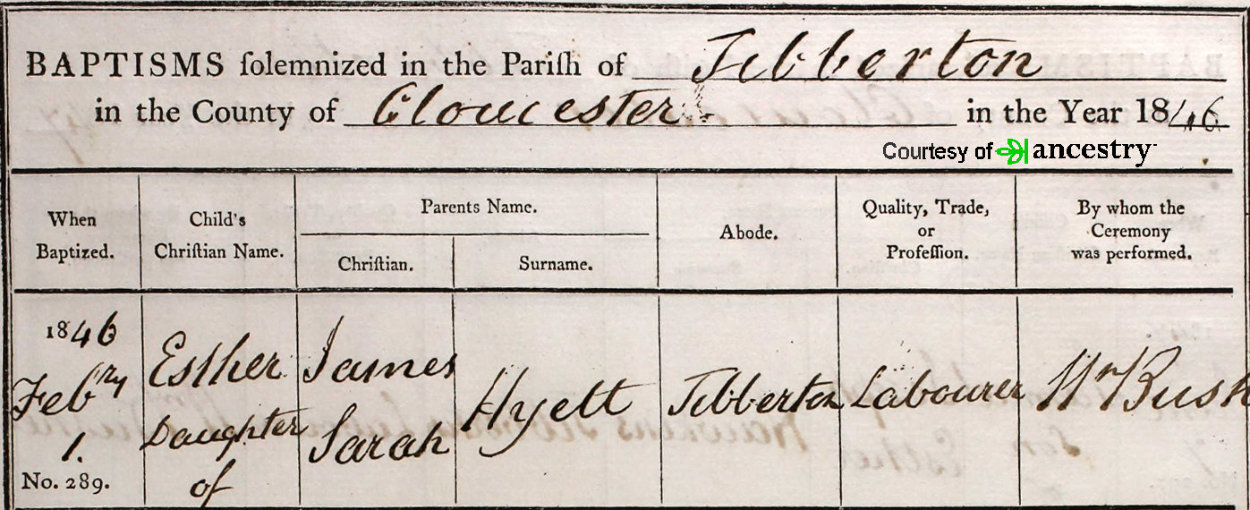 BAPTISMS ſolemnized in the Pariſh of Tibberton
in the County of Gloucester. in the Year 1846
Courtesy of ancestry
When Baptized.
Child's Chriſtian Name.
Parents Name.
Chriſtian.
Surname.
Abode.
Quality, Trade, or Profeſſion.
By whom the Ceremony was performed.
1846
Feb^ry
1.
No. 289.
Esther
Daughter
of
James
Sarah
Hyett
Tibberton
Labourer
Bush